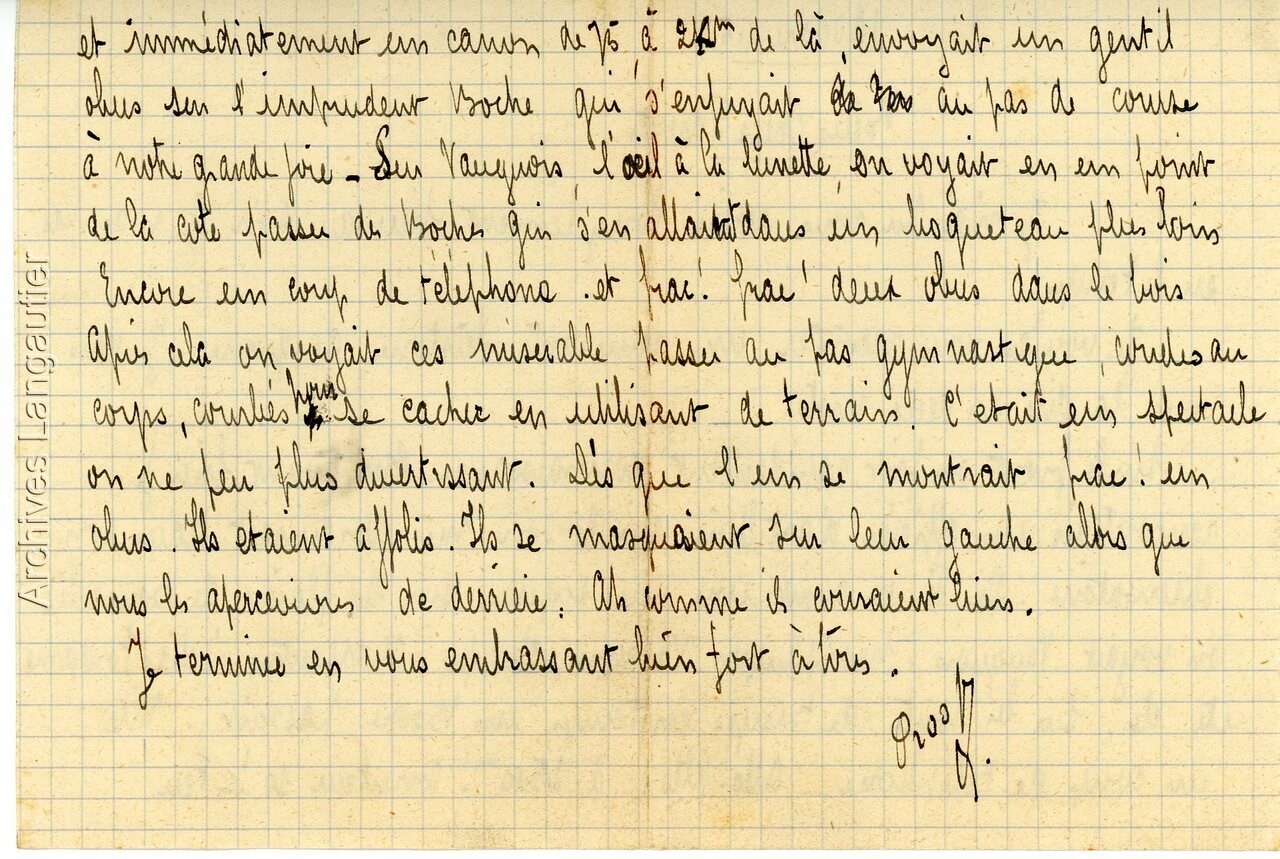 et immédiatement un canon de 75 à 2Km de là, envoyait un gentil
obus sur l'imprudent Boche qui s'enfuyait au pas de course
à notre grande joie - Sur Vauquois, l'oeil à la lunette, on voyait en un point
de la cote passer des Boches qui s'en allaient dans un boqueteau plus loin
Encore un coup de téléphone . et frac! frac! deux obus dans le bois
Après cela on voyait ces misérable passer au pas gymnastique, coudes au
corps, courbés pour se cacher en utilisant de terrain. C'etait un spectacle
on ne peu plus divertissant. Dès que l'un se montrait frac! un
obus. Ils etaient affolis. Ils se masquaient sur leur gauche alors que
nous les apercevions de derrière. Ah comme ils couraient bien.
Je termine en vous embrassant bien fort à tous.
Archives Langautier